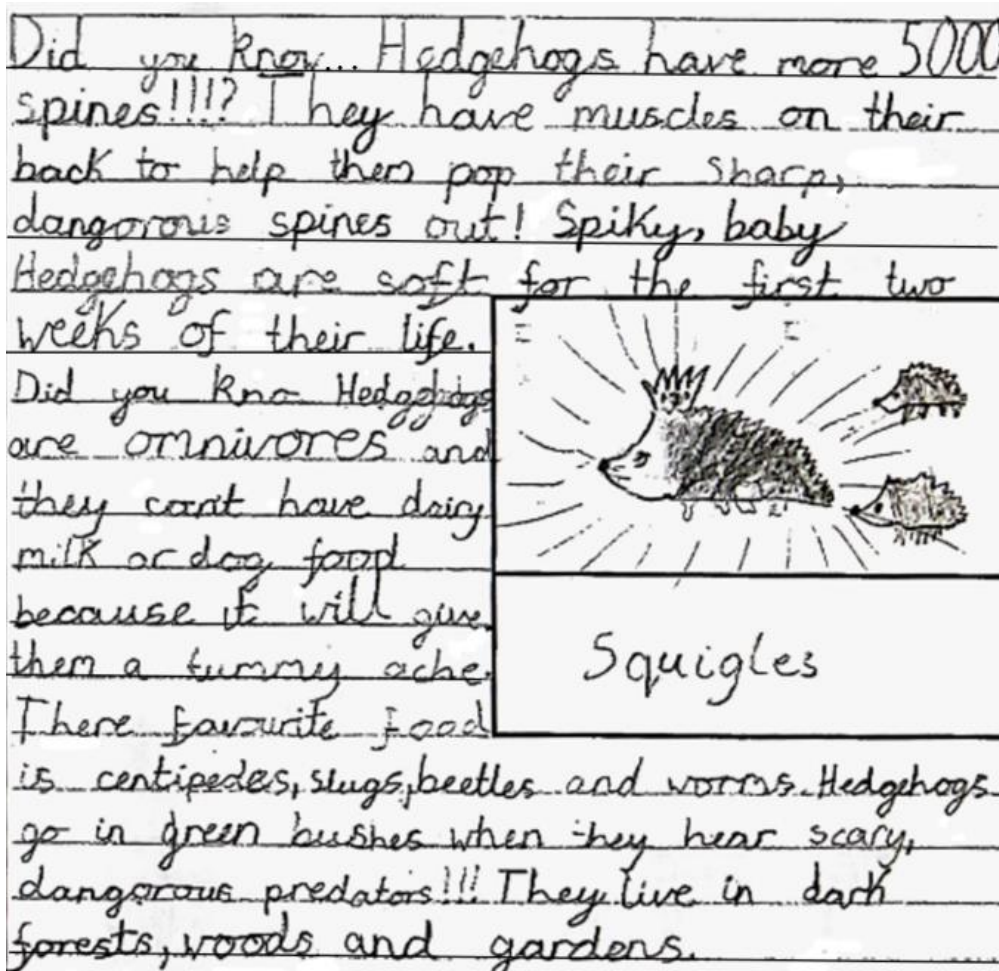 Did you know... Hedgehogs have more 5000
spines!!!? They have muscles on their
back to help them pop their sharp,
dangorous spines out! Spiky, baby
Hedgehogs are soft for the first two
weeks of their life.
Did you kno Hedgehogs
are omnivores and
they can't have dairy
milk or dog food
because it will give
them a tummy ache.
There favourite food
Squigles
is centipedes, slugs, beetles and worms. Hedgehogs
go in green bushes when they hear scary,
dangorous predators!!! They live in dark
forests, woods and gardens.